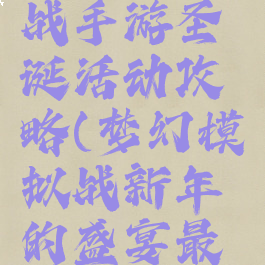 战手游圣
诞活动攻
略(梦幻模
拟战新年
的盛宴最